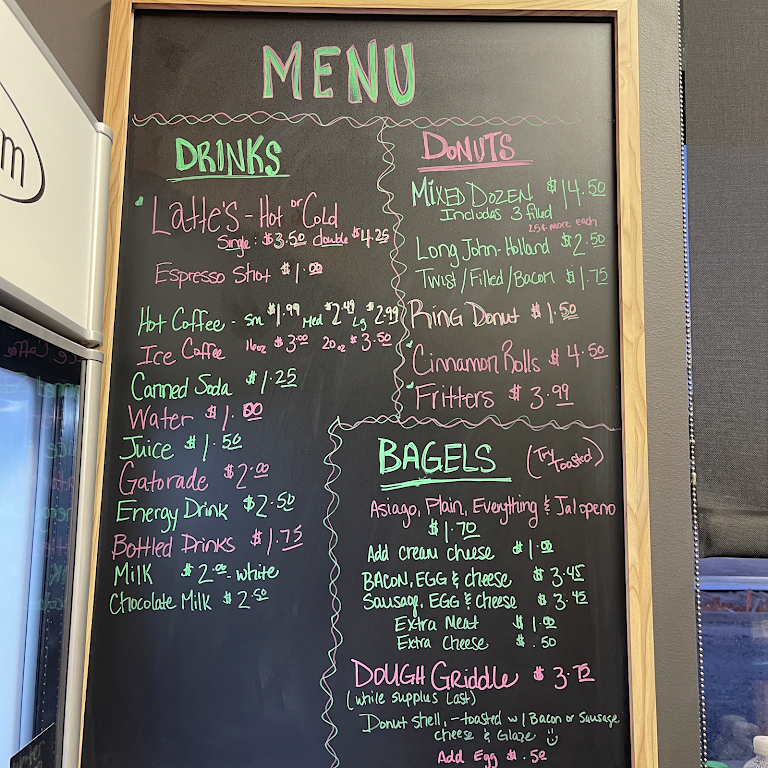 MENU
DRINKS
Latte's - Hot or Cold
Single: $3.50 double $4.25
Espresso Shot $1.00
Hot Coffee - Sm $1.99 Med $2.49 Lg $2.99
Ice Coffee 16oz $3.00 20oz $3.50
Canned Soda $1.25
Water $1.00
Juice $1.50
Gatorade $2.00
Energy Drink $2.50
Bottled Drinks $1.75
Milk $2.00 - white
Chocolate Milk $2.50
DONUTS
Mixed Dozen $14.50
Includes 3 filled
25¢ more each
Long John - Holland $2.50
Twist/Filled/Bacon $1.75
Ring Donut $1.50
Cinnamon Rolls $4.50
Fritters $3.99
BAGELS (Try Toasted)
Asiago, Plain, Everything & Jalapeno
$1.70
Add cream cheese $1.00
BACON, EGG & cheese $3.45
Sausage, EGG & cheese $3.45
Extra Meat $1.00
Extra Cheese $.50
DOUGH Griddle $3.75
(while supplies last)
Donut shell, - toasted w/ Bacon or Sausage
cheese & Glaze
Add Egg $.50
m